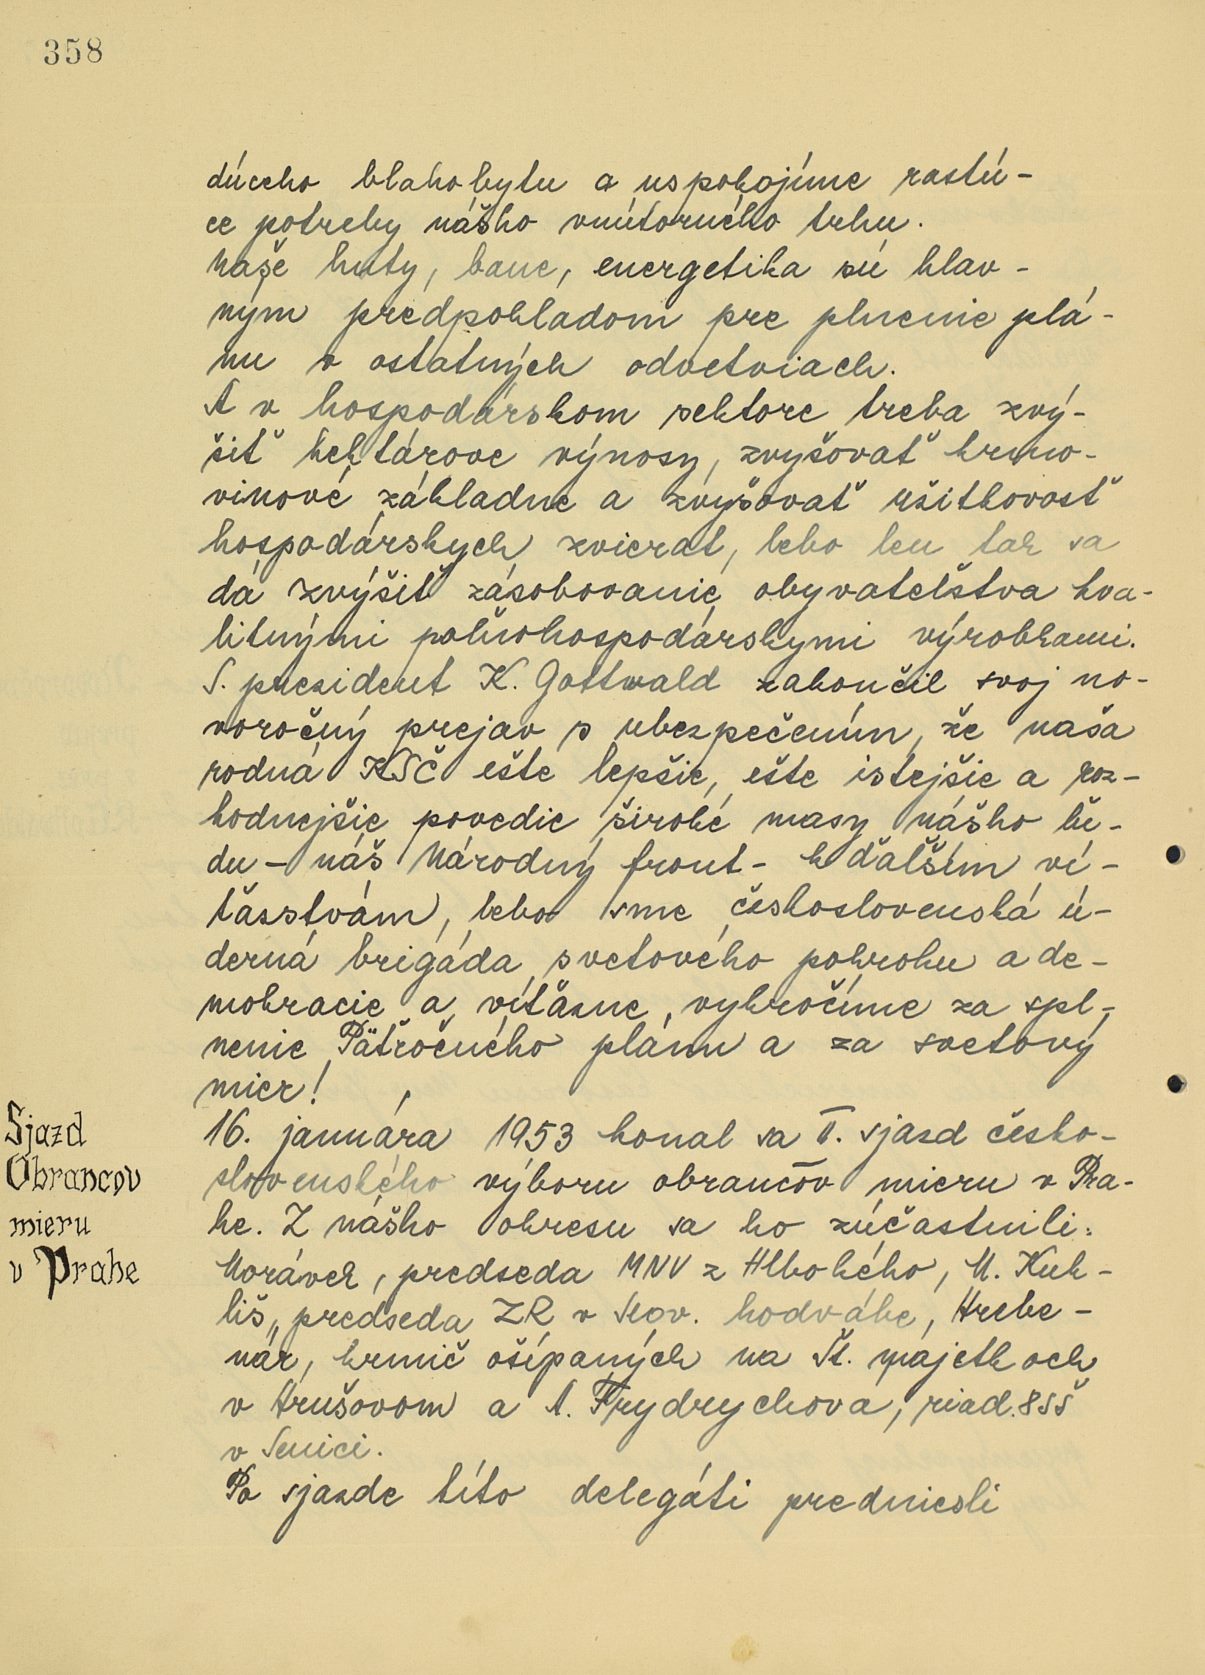 358
dúceho blahobytu a uspokojíme rastú-
ce potreby nášho vnútorného trhu.
Naše huty, bane, energetika sú hlav-
ným predpokladom pre plnenie plá-
nu v ostatných odvetviach.
A v hospodárskom sektore treba zvý-
šiť hektárove výnosy, zvyšovať krmo-
vinové základne a zvyšovať užitkovosť
hospodárskych zvierat, lebo len tak sa
dá zvýšiť zásobovanie obyvateľstva kva-
litnými poľnohospodárskymi výrobkami.
S. prezident K. Gottwald zakončil svoj no-
voročný prejav s ubezpečením, že naša
rodná KSČ ešte lepšie, ešte istejšie a roz-
hodnejšie povedie široké masy nášho ľu-
du - náš Národný front - k ďalším ví-
ťazstvám, lebo sme československá ú-
derná brigáda svetového pokroku a de-
mokracie a víťazne vykročíme za spl-
nenie Päťročného plánu a za svetový
mier!
Sjazd
Obrancov
mieru
v Prahe
16. januára 1953 konal sa II. sjazd česko-
slovenského výboru obrancov mieru v Pra-
he. Z nášho okresu sa ho zúčastnili:
Morávek, predseda MNV z Hlbokého, M. Kuk-
liš, predseda ZR v Slov. hodvábe, Hrebe-
nár, krmič ošípaných na Št. majetkoch
v Hrušovom a A. Frydrychová, riad. 8SŠ
v Senici.
Po sjazde títo delegáti predniesli